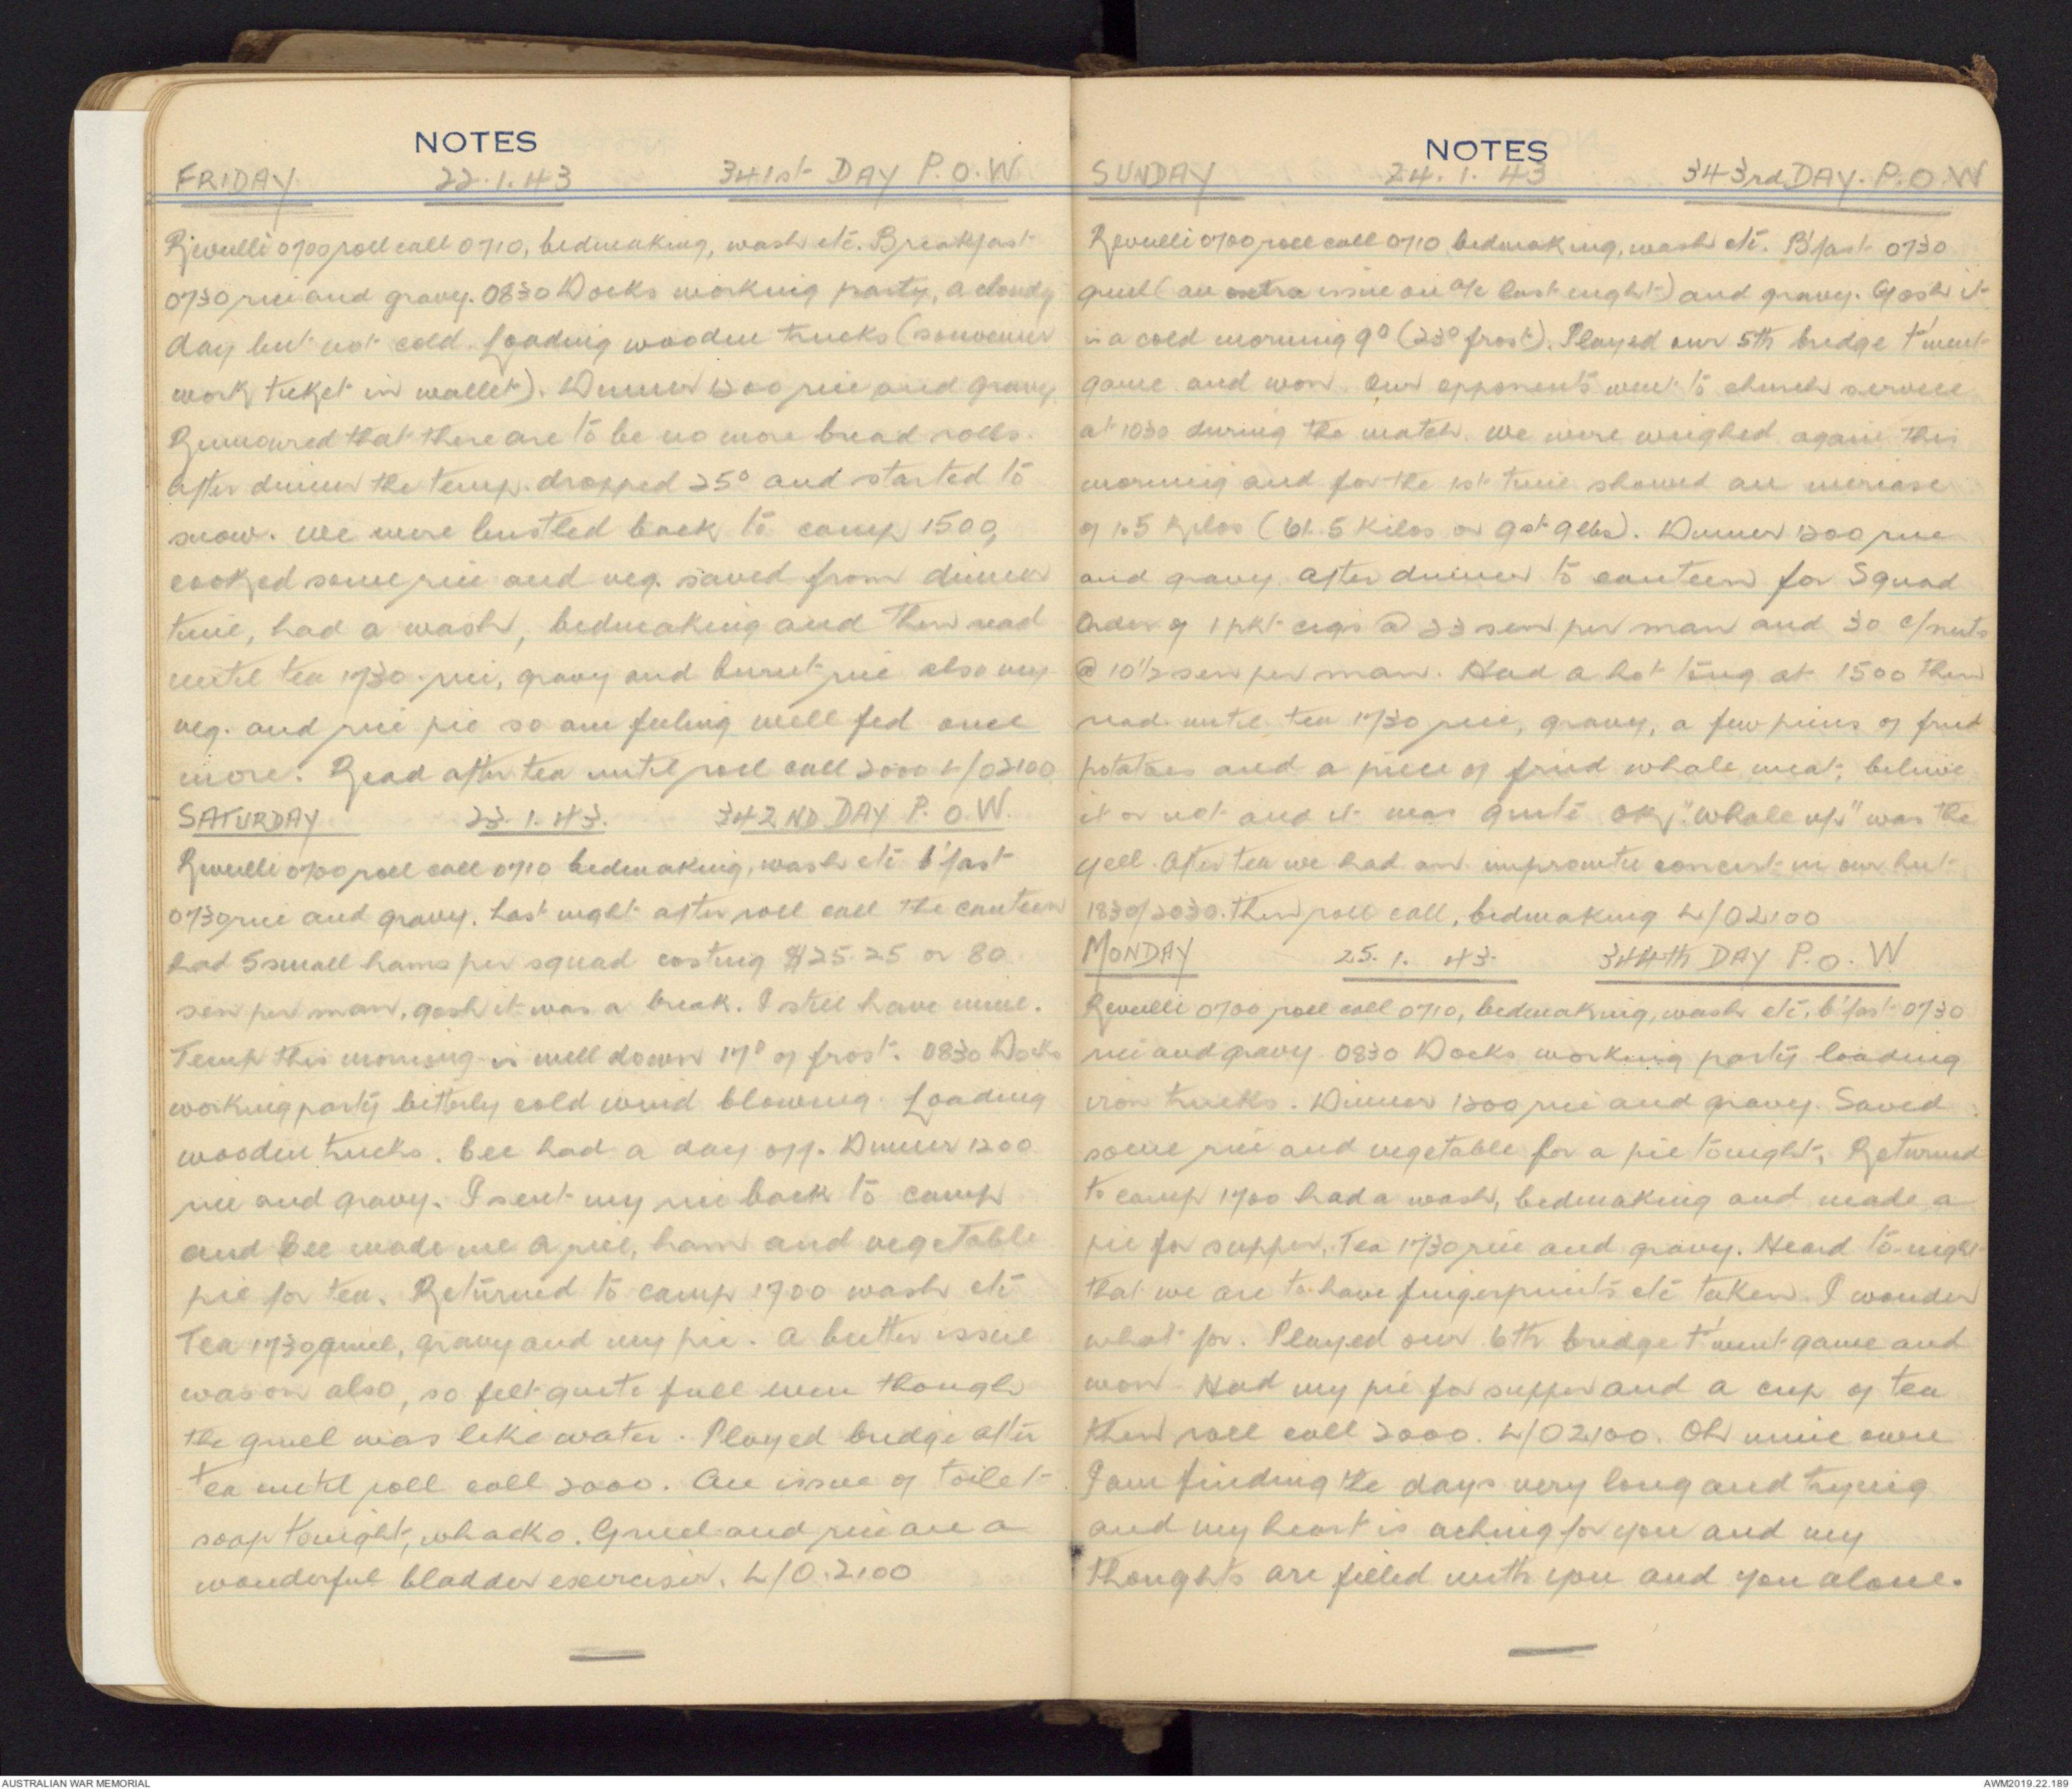 NOTES
FRIDAY 22.1.43 341st DAY P.O.W
Revielli 0700 roll call 0710, bedmaking, wash etc. Breakfast
0730 rice and gravy. 0830 Docks working party, a cloudy
day but not cold. Loading wooden trucks (souvenir
work ticket in wallet). Dinner 1200 rice and gravy
Rumoured that there are to be no more bread rolls.
After dinner the temp. dropped 25° and started to
snow. We were hustled back to camp 1500,
cooked some rice and veg. saved from dinner
time, had a wash, bedmaking and then read
until tea 1730. rice, gravy and burnt rice also my
veg. and rice pie so am feeling well fed once
more. Read after tea until roll call 2000 L/O 2100
SATURDAY 23.1.43. 342ND DAY P.O.W.
Revielli 0700 roll call 0710 bedmaking, wash etc b'fast
0730 rice and gravy. Last night after roll call the canteen
had 5 small hams per squad costing $25.25 or 80
sen per man, gosh it was a break. I still have mine.
Temp this morning is well down 17° of frost. 0830 Docks
working party bitterly cold wind blowing. Loading
wooden trucks. Cec had a day off. Dinner 1200
rice and gravy. I sent my rice back to camp
and Cec made me a rice, ham and vegetable
pie for tea. Returned to camp 1700 wash etc
Tea 1730 gruel, gravy and my pie. A butter issue
was on also, so felt quite full even though
the gruel was like water. Played bridge after
tea until roll call 2000. An issue of toilet
soap tonight, whacko. Gruel and rice are a
wonderful bladder exerciser. L/O. 2100
NOTES
SUNDAY 24.1.43 343rd DAY. P.O.W
Revielli 0700 roll call 0710 bedmaking, wash etc. B'fast 0730
gruel (an extra issue on a/c last night) and gravy. Gosh it
is a cold morning 9° (23° frost). Played our 5th bridge t'ment
game and won. Our opponents went to church service
at 1030 during the match. We were weighed again this
morning and for the 1st time showed an increase
of 1.5 Kilos (61.5 Kilos or 9st 9lbs). Dinner 1200 rice
and gravy after dinner to canteen for Squad
Order of 1 pkt cigs @ 23 sen per man and 30 c/nuts
@ 10½ sen per man. Had a hot tong at 1500 then
read until tea 1730 rice, gravy, a few pieces of fried
potatoes and a piece of fried whale meat, believe
it or not and it was quite OK, "Whale oh" was the
yell. After tea we had an impromtu concert in our hut
1830/2030. then roll call, bedmaking L/O 2100
MONDAY 25.1.43. 344th DAY P.O.W
Revielli 0700 roll call 0710, bedmaking, wash etc, b'fast 0730
rice and gravy 0830 Docks working party loading
iron trucks. Dinner 1200 rice and gravy. Saved
some rice and vegetable for a pie tonight. Returned
to camp 1700 had a wash, bedmaking and made a
pie for supper. Tea 1730 rice and gravy. Heard to-night
that we are to have fingerprints etc taken. I wonder
what for. Played our 6th bridge t'ment game and
won. Had my pie for supper and a cup of tea
then roll call 2000. L/O 2100. Oh mine own
I am finding the days very long and trying
and my heart is aching for you and my
thoughts are filled with you and you alone.
AUSTRALIAN WAR MEMORIAL
AWM2019.22.189